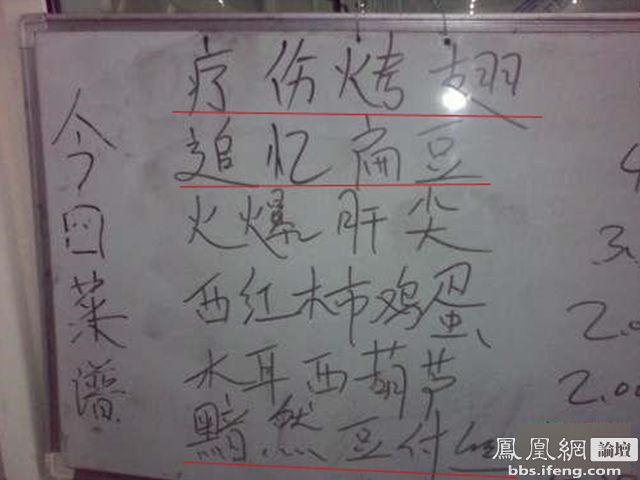 今日菜谱
疗伤烤翅
追忆扁豆
火爆肝尖
西红柿鸡蛋
木耳西葫芦
黯然豆付
3
2.0
2.00
鳳凰網 論壇
bbs.ifeng.com